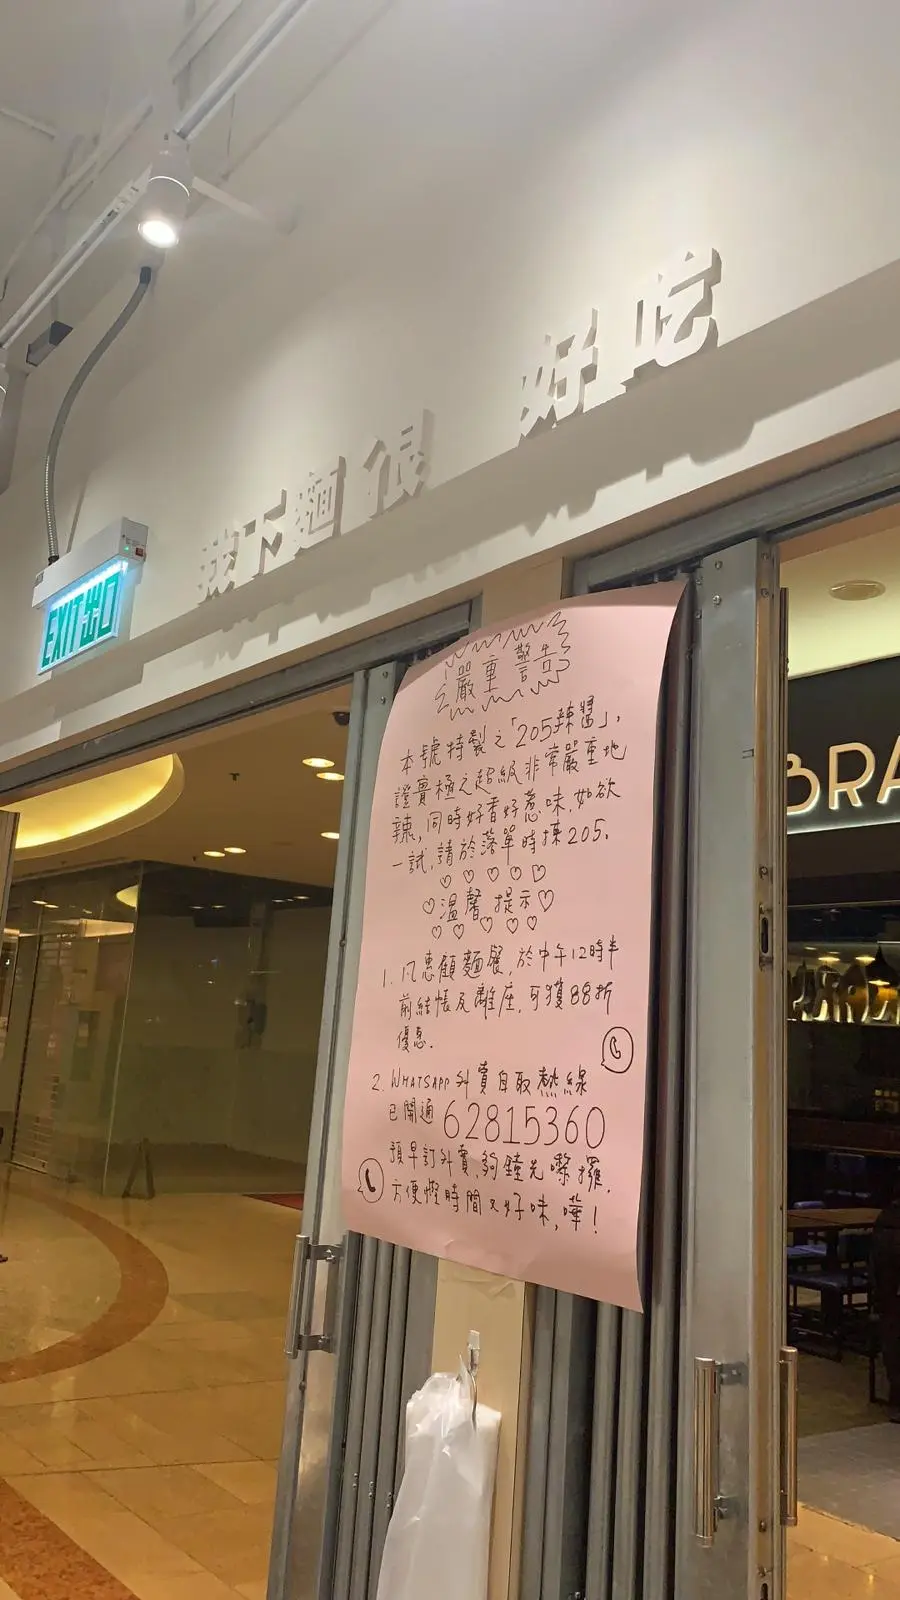 我下麵很 好吃
EXIT 出口
嚴重警告
本號特製之「205辣醬」,
證實極之超級非常嚴重地
辣,同時好香好惹味,如欲
一試,請於落單時揀205.
溫馨提示
1. 凡惠顧麵餐,於中午12時半
前結帳及離座,可獲88折
優惠.
2. WHATSAPP外賣自取熱線
已開通 62815360
預早訂外賣,夠鐘先嚟攞,
方便慳時間又好味,嘩!
BRA